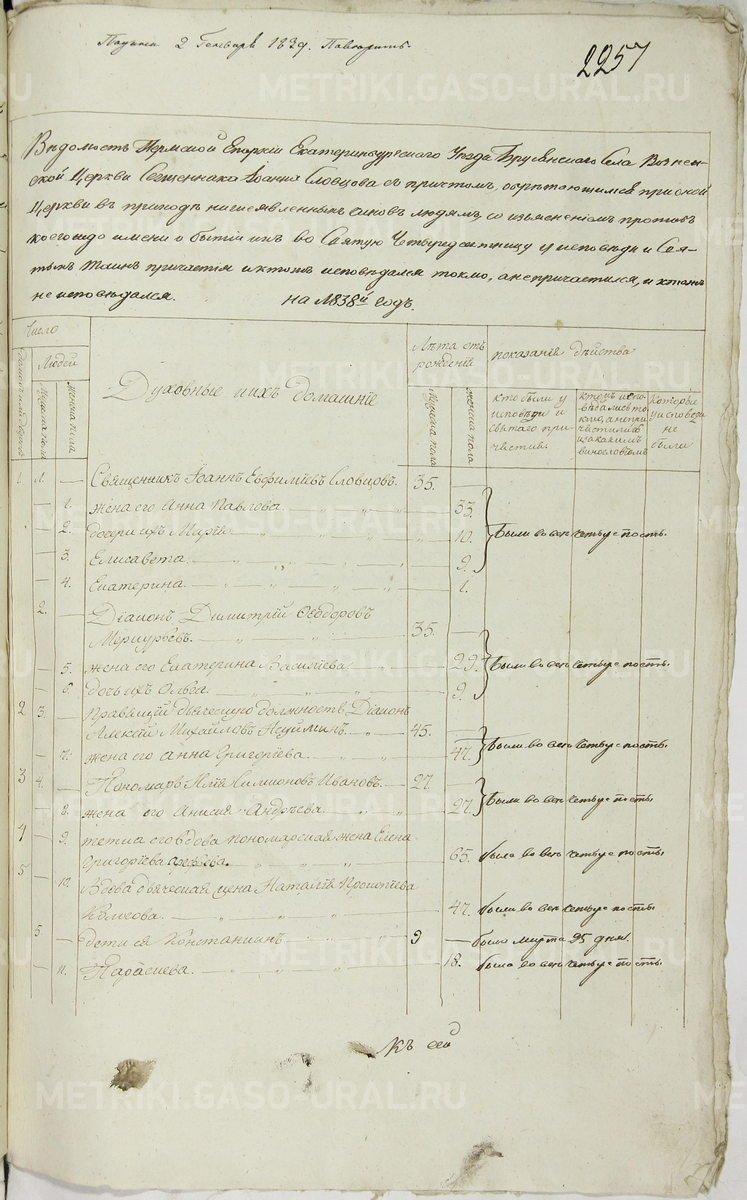 2 Генваря 1839.
2257
Вѣдомость Пермской Епархіи Екатеринбургскаго Уѣзда Брусянскаго Села Вознесен-
ской Церкви Священника Іоанна Словцова съ причтомъ, обрѣтающимся при оной
Церкви въ приходѣ нижеявленнымъ чиновъ людямъ, со изъясненіемъ противъ
коегождо имени о бытіи ихъ во Святую Четыредесятницу у исповѣди и Свя-
тыхъ Таинъ причастія и ктожъ исповѣдался токмо, а не причастился, и ктожъ
не исповѣдался. на 1838й Годъ.
Число
Людей
Духовные и ихъ домашніе
Лѣта отъ рожденія
показаніе дѣйства
мужеска пола
женска пола
мужеска пола
женска пола
кто были у исповѣди и святаго причастія.
ктожъ исповѣдались токмо, а не причастились и за какимъ винословіемъ
Которые у исповѣди не были
1. 1. Священникъ Іоаннъ Евфиміевъ Словцовъ 35.
1. жена его Анна Павлова 33.
2. дочери ихъ Марія 10. были во всю четыре пость.
3. Елисавета 9.
4. Екатерина 1.
2. Діаконъ Димитрій Ѳеодоровъ
Меркурьевъ 35.
5. жена его Екатерина Васильева 29. были во всю четыре пость.
6. дочь ихъ Ольга 9.
2 3. Правящій дьяческую должность Діаконъ
Алексій Михайловъ 45.
7. жена его Анна Григоріева 47. были во всю четыре пость.
3 4. Пономарь Илія Симеоновъ Ивановъ 27.
8. жена его Анисія Андрѣева 27. были во всю четыре пость.
4 9. тетка его вдова пономарская жена Елена
Григоріева 65. была во всю четыре пость.
5 10. Вдова дьяческая жена Наталія Прокопіева
47. были во всю четыре пость.
5 дети ея Константинъ 9 былъ марта 25 дня.
11. Параскева 18. была во всю четыре пость.
Къ сей
METRIKI.GASO-URAL.RU